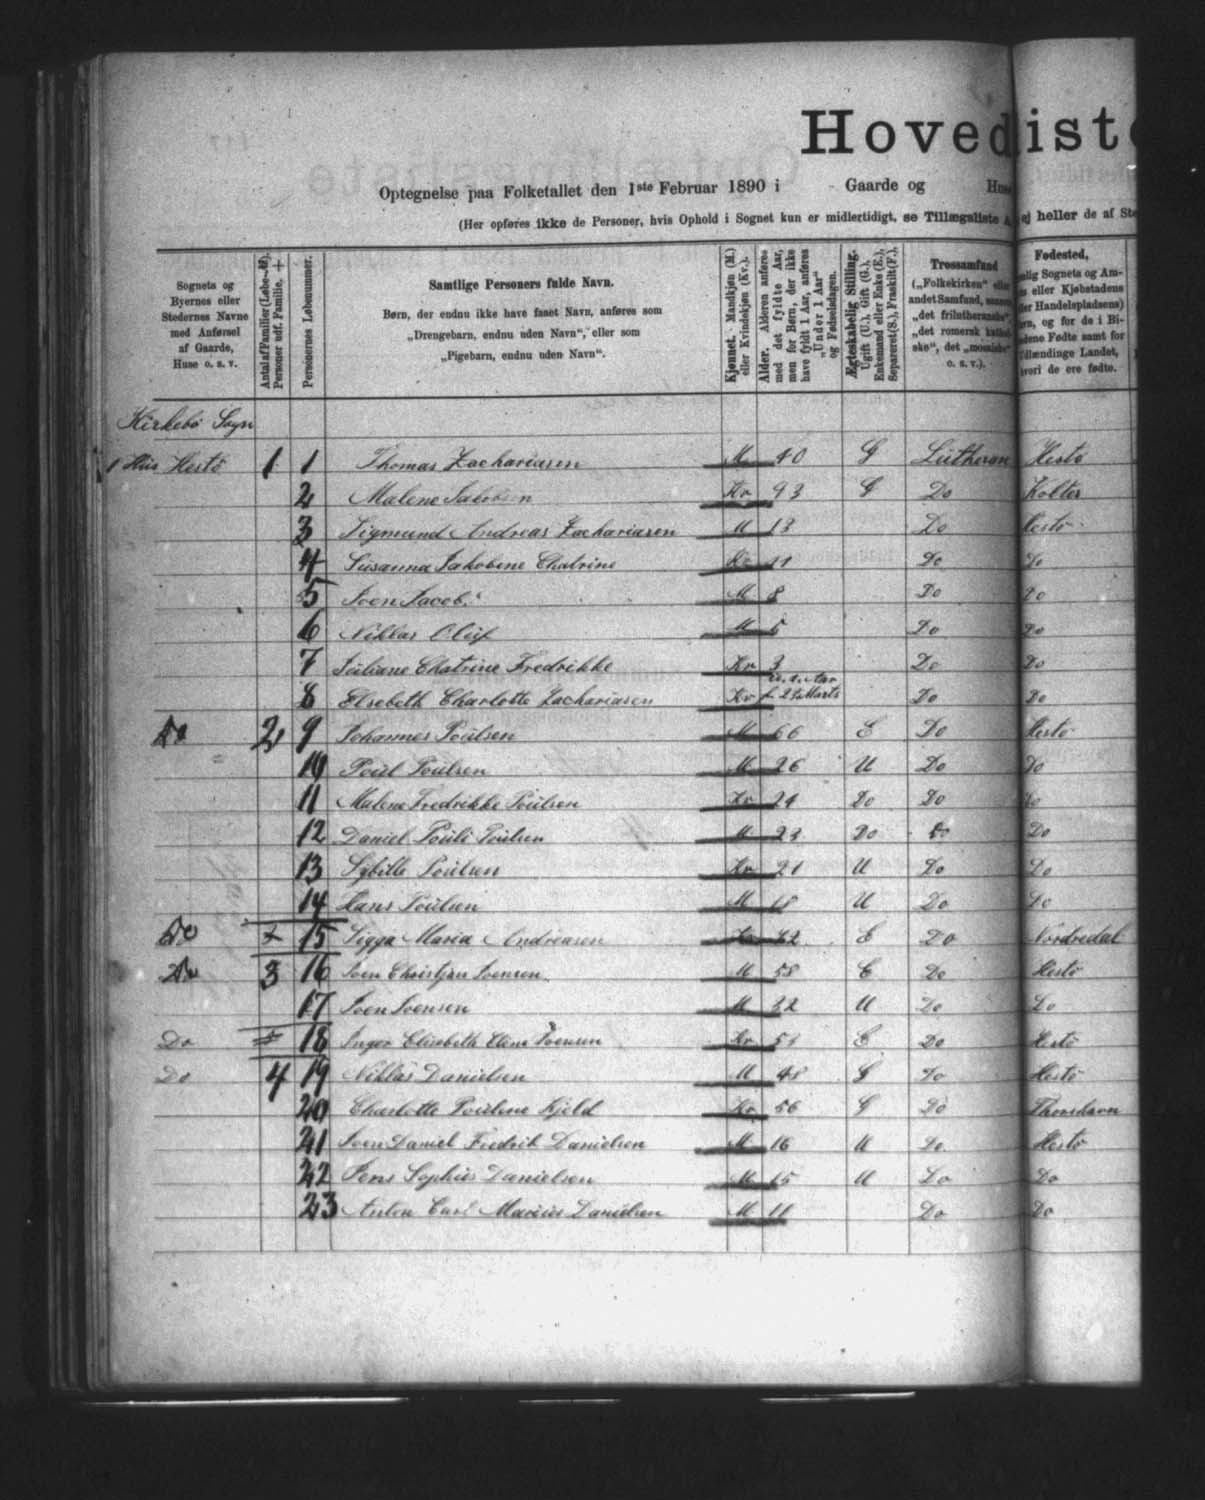 Hovedliste
Optegnelse paa Folketallet den 1ste Februar 1890 i Gaarde og Huse
(Her opføres ikke de Personer, hvis Ophold i Sognet kun er midlertidigt, se Tillægsliste A ej heller de af Ste
Sognets og Byernes eller Stedernes Navne med Anførsel af Gaarde, Huse o. s. v.
Antal af Familier (Løbe-№). Personer udf. Familie, +
Personernes Løbenummer.
Samtlige Personers fulde Navn.
Børn, der endnu ikke have faaet Navn, anføres som
„Drengebarn, endnu uden Navn“, eller som
„Pigebarn, endnu uden Navn“.
Kjønnet. Mandkjøn (M.) eller Kvindekjøn (Kv.).
Alder. Alderen anføres med det fyldte Aar, men for Børn, der ikke have fyldt 1 Aar, anføres „Under 1 Aar“ og Fødselsdagen.
Ægteskabelig Stilling. Ugift (U.), Gift (G.), Enkemand eller Enke (E.), Separeret (S.), Fraskilt (F.),
Trossamfund
(„Folkekirken“ eller andet Samfund, saasom „det frilutheranske“, „det romersk katholske“, det „mosaiske“ o. s. v.).
Fødested,
nlig Sognets og Am-
ts eller Kjøbstadens
ler Handelspladsens)
vn, og for de i Bi-
dene Fødte samt for
Udlændinge Landet,
hvori de ere fødte.
Kirkebö Sogn
1 Hus Hestö 1 1 Thomas Zachariasen M 40 G Lutheran Hestö
2 Malene Jakobsen Kv 43 G Do Kolter
3 Sigmund Andreas Zachariasen M 13 Do Hestö
4 Susanna Jakobene Chatrine Kv 11 Do Do
5 Joen Jacob M 8 Do Do
6 Niklas Oluf M 5 Do Do
7 Juliane Chatrine Fredrikke Kv 3 Do Do
8 Elsebeth Charlotte Zachariasen Kv u. 1. Aar f. 24 Marts Do Do
Do 2 9 Johannes Poulsen M 66 E Do Hestö
10 Poul Poulsen M 26 U Do Do
11 Malene Fredrikke Poulsen Kv 24 Do Do Do
12 Daniel Pouli Poulsen M 23 Do Do Do
13 Sybille Poulsen Kv 21 U Do Do
14 Hans Poulsen M 18 U Do Do
Do + 15 Sigga Maria Andreasen Kv 62 E Do Nordredal
Do 3 16 Joen Christjan Joensen M 58 E Do Hestö
17 Joen Joensen M 22 U Do Do
Do + 18 Inger Elisabeth Joensen Kv 5 E Do Hestö
Do 4 19 Niklas Danielsen M 48 G Do Hestö
20 Charlotte Poulene Kjeld Kv 56 G Do Thorshavn
21 Joen Daniel Fredrik Danielsen M 16 U Do Hestö
22 Jens Sophus Danielsen M 15 U Do Do
23 Anton Carl Marius Danielsen M 11 Do Do